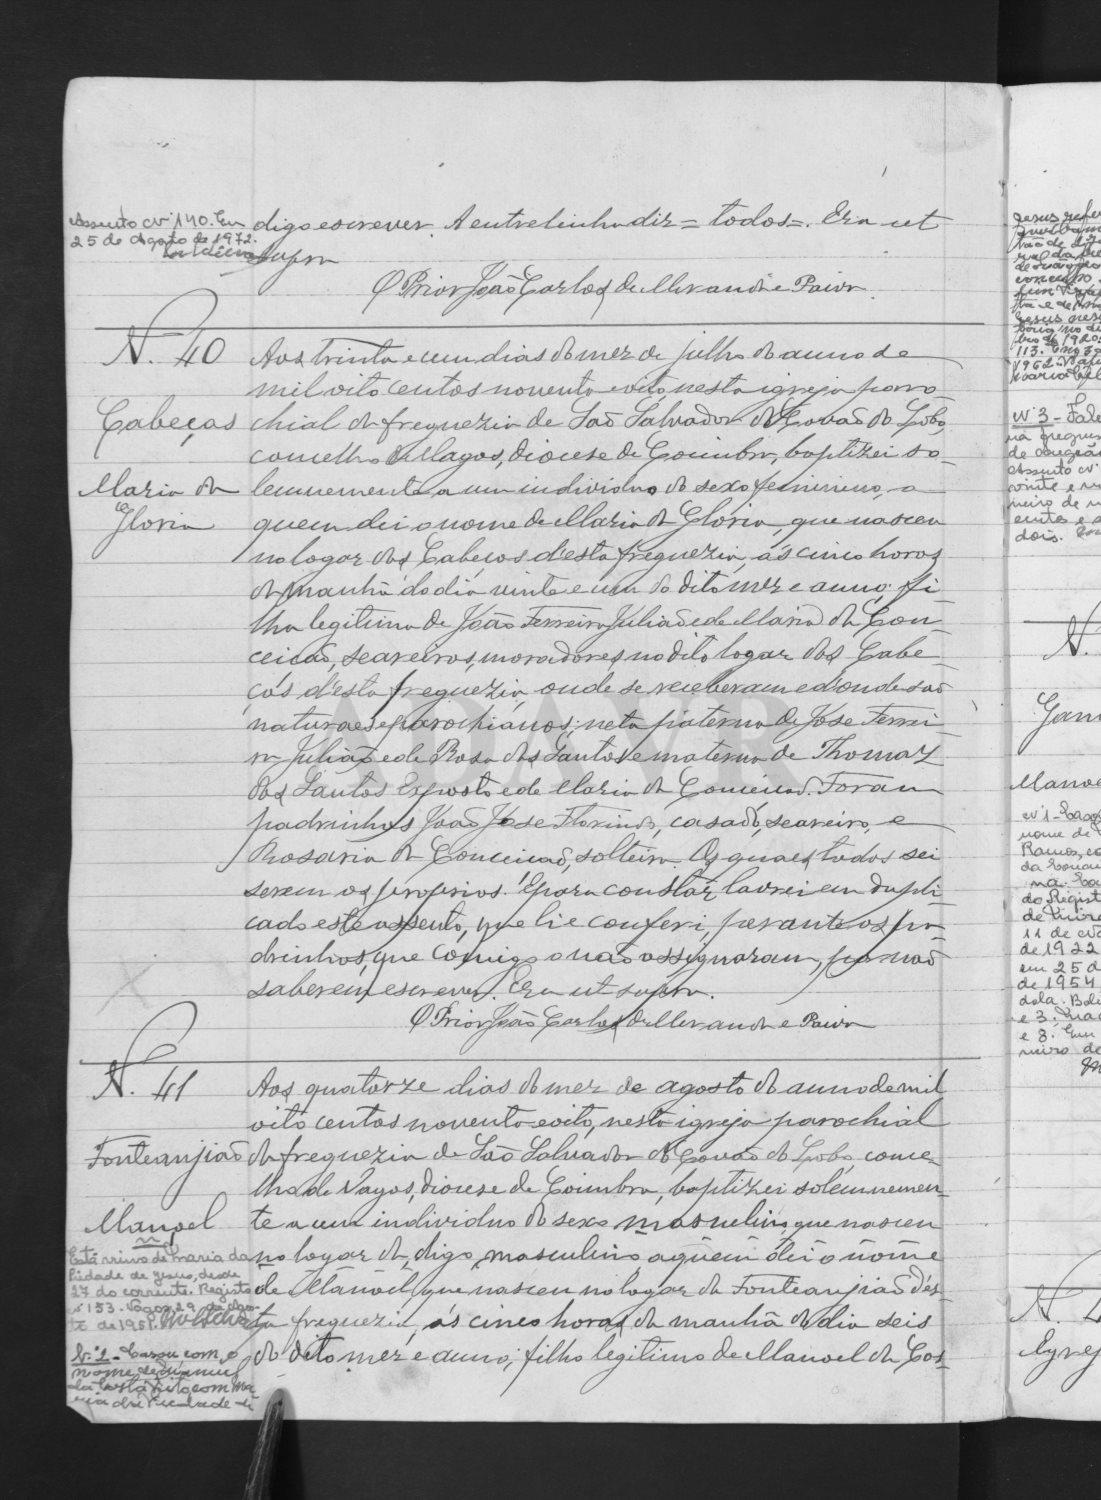 Assento Nº 140. Em
25 de Agosto de 1972.
digo escrever. A entrelinha diz = todos =. Era ut
supra
O Prior João Carlos de Miranda e Paiva
N. 40
Cabeças
Maria da
Gloria
Aos trinta e um dias do mez de julho do anno de
mil oito centos noventa e oito, nesta igreja paro
chial da freguezia de São Salvador do Covão do Lobo,
concelho de Vagos, diocese de Coimbra, baptizei so-
lemnemente a um individuo do sexo feminino, a
quem dei o nome de Maria da Gloria, que nasceu
no logar das Cabeças d'esta freguezia, ás cinco horas
da manhã do dia vinte e um do dito mez e anno; fi
lha legitima de João Ferreira Julião e de Maria da Con-
ceicão, seareiros, moradores no dito logar das Cabe-
ças d'esta freguezia, onde se receberam e d'onde são
naturaes e parochianos; neta paterna de José Ferrei-
ra Julião e de Rosa dos Santos e materna de Thomaz
dos Santos Exposto e de Maria da Conceicão. Foram
padrinhos João José Florindo, casado, seareiro, e
Rosaria da Conceicão, solteira. Os quaes todos sei
serem os proprios. E para constar lavrei em dupli-
cado este assento, que li e conferi, perante os pa-
drinhos, que comigo o não assignaram, por não
saberem escrever. Era ut supra.
O Prior João Carlos de Miranda e Paiva
N. 41
Fonteanjião
Manoel
Aos quatorze dias do mez de agosto do anno de mil
oito centos noventa e oito, nesta igreja parochial
da freguezia de São Salvador do Covão do Lobo, conce-
lho de Vagos, diocese de Coimbra, baptizei solemnemen-
te a um individuo do sexo masculino, que nasceu
no logar da, digo, masculino, a quem dei o nome
de Manoel, que nasceu no logar da Fonteanjião d'es-
ta freguezia, ás cinco horas da manhã do dia seis
do dito mez e anno; filho legitimo de Manoel da Cos-
Está viuvo de Maria da
Piedade de Jesus, desde
27 do corrente. Registo
nº 153. Vagos, 29 de Agos-
to de 1951.
Nº 2 - Casou com o
nome de Manuel
da Costa
com Ma-
ria da Piedade
Nº 3 -
Assento Nº
dois.
N.
Manoel
nº 1 - Casou
nome de
Ramos,
do Regist
11 de
de 1922
em 25 d
de 1954
N. 4